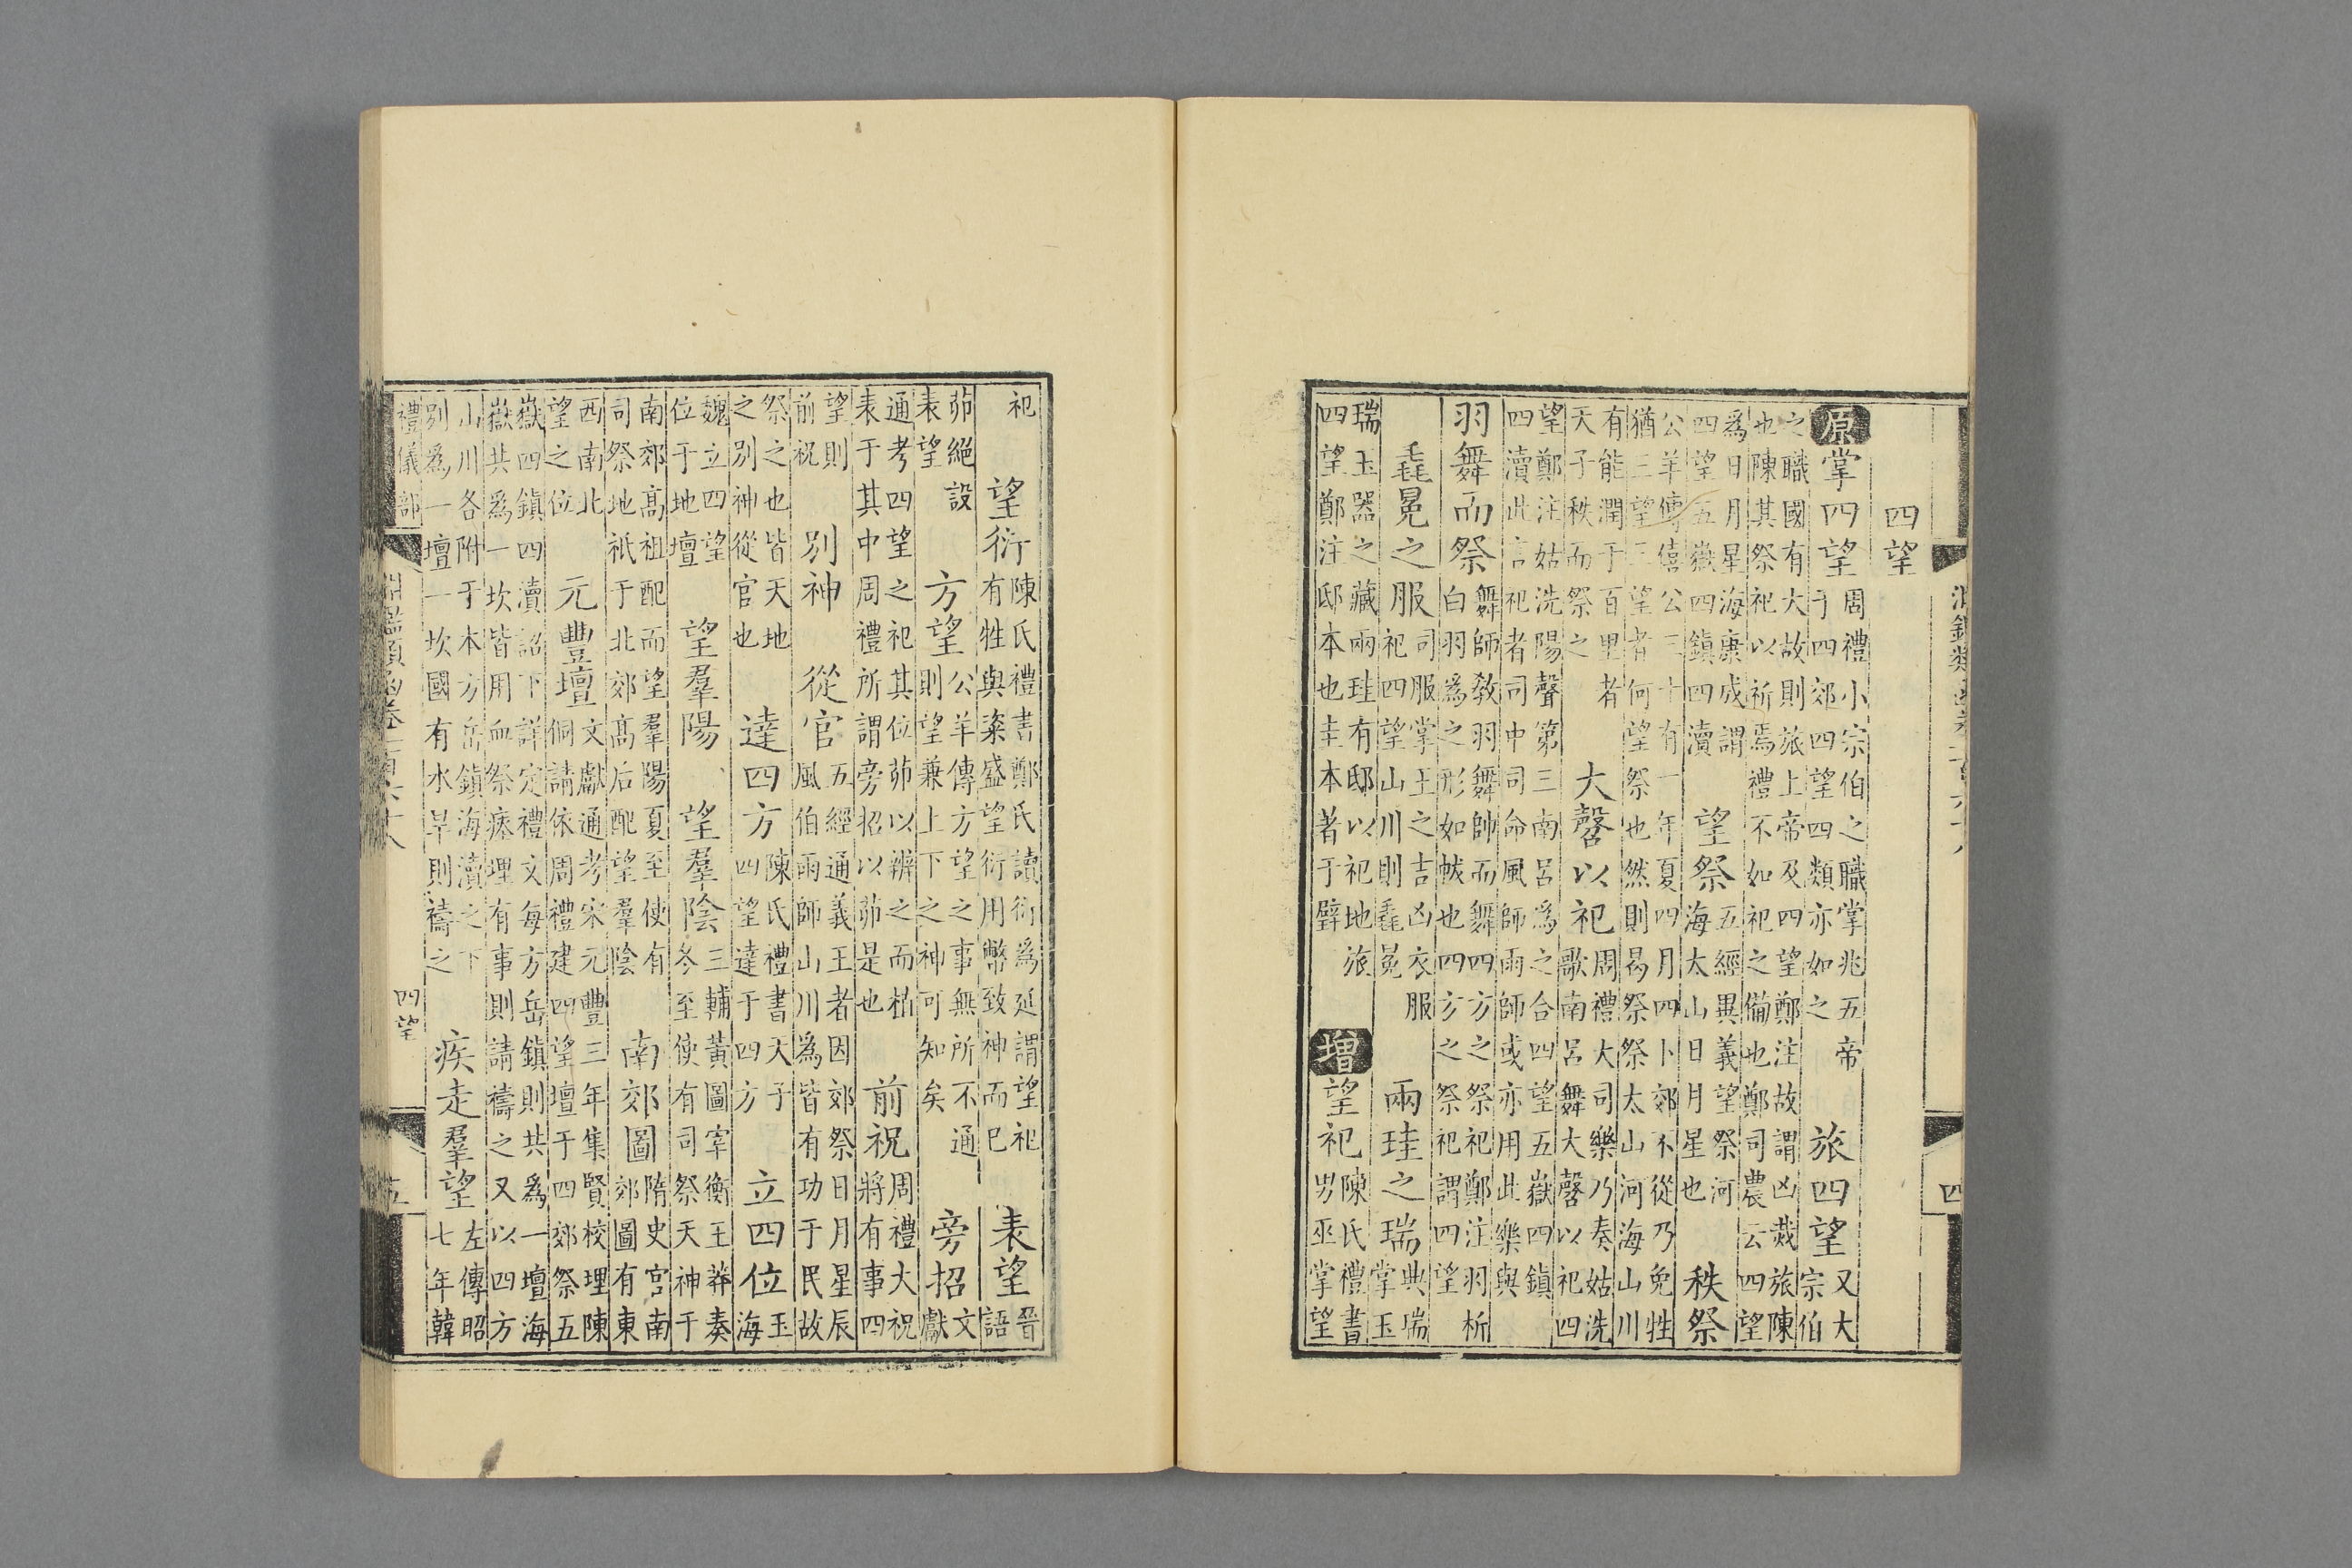 四望
原掌四望周禮小宗伯之職掌兆五帝于四郊四望四類亦如之旅四望又大宗伯
之職國有大故則旅上帝及四望鄭注故謂凶烖旅陳也陳其祭祀以祈焉禮不如祀之備也鄭司農云四望
爲日月星海康成謂四望五嶽四鎮四瀆望祭五經異義望祭河海太山日月星也秩祭
公羊傳僖公三十有一年夏四月四卜郊不從乃免牲猶三望三望者何望祭也然則曷祭祭太山河海山川
有能潤于百里者天子秩而祭之大磬以祀周禮大司樂乃奏姑洗歌南呂舞大磬以祀四
望鄭注姑洗陽聲第三南呂爲之合四望五嶽四鎮四瀆此言祀者司中司命風師雨師或亦用此樂與
羽舞而祭舞師敎羽舞帥而舞四方之祭祀鄭注羽析白羽爲之形如帗也四方之祭祀謂四望
毳冕之服司服掌王之吉凶衣服祀四望山川則毳冕兩珪之瑞典瑞掌玉
瑞玉器之藏兩珪有邸以祀地旅四望鄭注邸本也圭本著于璧增望祀陳氏禮書男巫掌望
祀望衍陳氏禮書鄭氏讀衍爲延謂望祀有牲與粢盛望衍用幣致神而巳表望晉語
茆絕設表望方望公羊傳方望之事無所不通則望兼上下之神可知矣旁招文獻
通考四望之祀其位茆以辨之而植表于其中周禮所謂旁招以茆是也前祝周禮大祝將有事四
望則前祝別神從官五經通義王者因郊祭日月星辰風伯雨師山川爲皆有功于民故
祭之也皆天地之別神從官也達四方陳氏禮書天子四望達于四方立四位玉海
魏立四望位于地壇望羣陽望羣陰三輔黃圖宰衡王莽奏冬至使有司祭天神于
南郊高祖配而望羣陽夏至使有司祭地祇于北郊高后配望羣陰南郊圖隋史宮南郊圖有東
西南北望之位元豐壇文獻通考宋元豐三年集賢校理陳侗請依周禮建四望壇于四郊祭五
嶽四鎮四瀆詔下詳定禮文每方岳鎮則共爲一壇海嶽共爲一坎皆用血祭瘞埋有事則請禱之又以四方
山川各附于本方岳鎮海瀆之下別爲一壇一坎國有水旱則禱之疾走羣望左傳昭七年韓
禮儀部 淵鑑類函卷一百六十八 四望 五